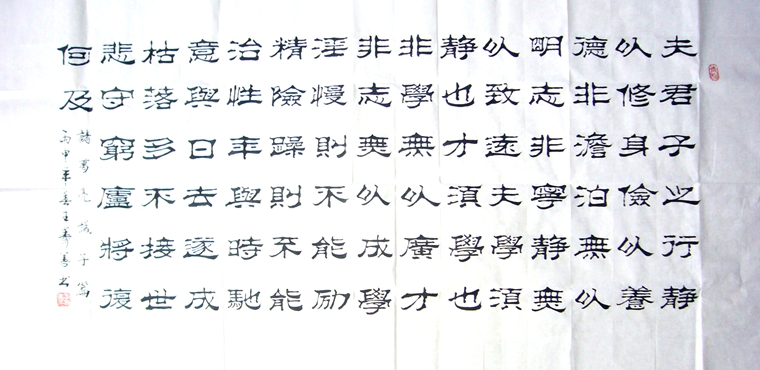 夫君子之行静
以修身儉以養
德非澹泊無以
明志非寧静無
以致遠夫學須
静也才須學也
非學無以廣才
非志無以成學
淫慢則不能励
精險躁則不能
治性年與時馳
意與日去遂成
枯落多不接世
悲守窮廬將復
何及
諸葛亮誡子篇
丙申年